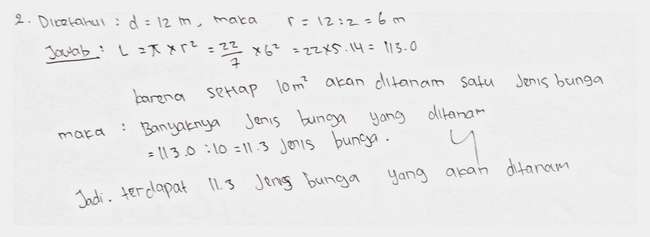 2. Diketahui : d = 12 m, maka r = 12 : 2 = 6 m
Jawab : L = π × r² = 22/7 × 6² = 22 × 5.14 = 113.0
karena setiap 10 m² akan ditanam satu Jenis bunga
maka : Banyaknya Jenis bunga yang ditanam
= 113.0 : 10 = 11.3 Jenis bunga.
Jadi. terdapat 11.3 Jenis bunga yang akan ditanam